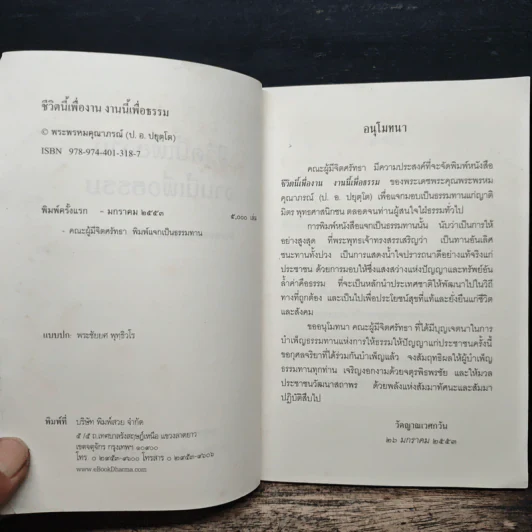 ชีวิตนี้เพื่องาน งานนี้เพื่อธรรม
© พระพรหมคุณาภรณ์ (ป. อ. ปยุตฺโต)
ISBN 978-974-401-318-7
พิมพ์ครั้งแรก - มกราคม ๒๕๕๓ ๕,๐๐๐ เล่ม
- คณะผู้มีจิตศรัทธา พิมพ์แจกเป็นธรรมทาน
แบบปก: พระชัยยศ พุทฺธิวโร
พิมพ์ที่ บริษัท พิมพ์สวย จำกัด
๕/๕ ถ.เทศบาลรังสฤษฎ์เหนือ แขวงลาดยาว
เขตจตุจักร กรุงเทพฯ ๑๐๙๐๐
โทร ๐ ๒๙๕๓-๙๖๐๐ โทรสาร ๐ ๒๙๕๓-๙๖๐๖
www.eBookDharma.com
อนุโมทนา
คณะผู้มีจิตศรัทธา มีความประสงค์ที่จะจัดพิมพ์หนังสือ
ชีวิตนี้เพื่องาน งานนี้เพื่อธรรม ของพระเดชพระคุณพระพรหม
คุณาภรณ์ (ป. อ. ปยุตฺโต) เพื่อแจกมอบเป็นธรรมทานแก่ญาติ
มิตร พุทธศาสนิกชน ตลอดจนท่านผู้สนใจใฝ่ธรรมทั่วไป
การพิมพ์หนังสือแจกเป็นธรรมทานนั้น นับว่าเป็นการให้
อย่างสูงสุด ที่พระพุทธเจ้าทรงสรรเสริญว่า เป็นทานอันเลิศ
ชนะทานทั้งปวง เป็นการแสดงน้ำใจปรารถนาดีอย่างแท้จริงแก่
ประชาชน ด้วยการมอบให้ซึ่งแสงสว่างแห่งปัญญาและทรัพย์อัน
ล้ำค่าคือธรรม ที่จะเป็นหลักนำประเทศชาติให้พัฒนาไปในวิถี
ทางที่ถูกต้อง และเป็นไปเพื่อประโยชน์สุขที่แท้และยั่งยืนแก่ชีวิต
และสังคม
ขออนุโมทนา คณะผู้มีจิตศรัทธา ที่ได้มีบุญเจตนาในการ
บำเพ็ญธรรมทานแห่งการให้ธรรมให้ปัญญาแก่ประชาชนครั้งนี้
ขอกุศลจริยาที่ได้ร่วมกันบำเพ็ญแล้ว จงสัมฤทธิผลให้ผู้บำเพ็ญ
ธรรมทานทุกท่าน เจริญงอกงามด้วยจตุรพิธพรชัย และให้มวล
ประชาชนวัฒนาสถาพร ด้วยพลังแห่งสัมมาทัศนะและสัมมา
ปฏิบัติสืบไป
วัดญาณเวศกวัน
๒๖ มกราคม ๒๕๕๓